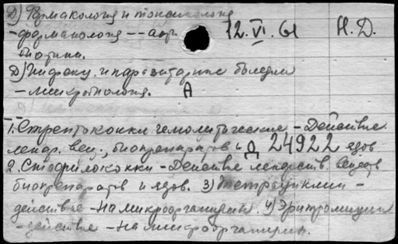 д) Фармакология и токсикология
- фармакология -- анти-
биотики.
12.VI.61
Н.Д.
д) Инфекц. и паразитарные болезни
- микробиология.
А
1. Стрептококки гемолитические - Действие
лекар. вещ., биопрепаратов и Д 24922 ядов
2. Стафилококки - Действие лекарств. веществ
биопрепаратов и ядов. 3) Тетрациклин -
действие - на микроорганизмы. 4) Эритромицин
- действие - на микроорганизмы.